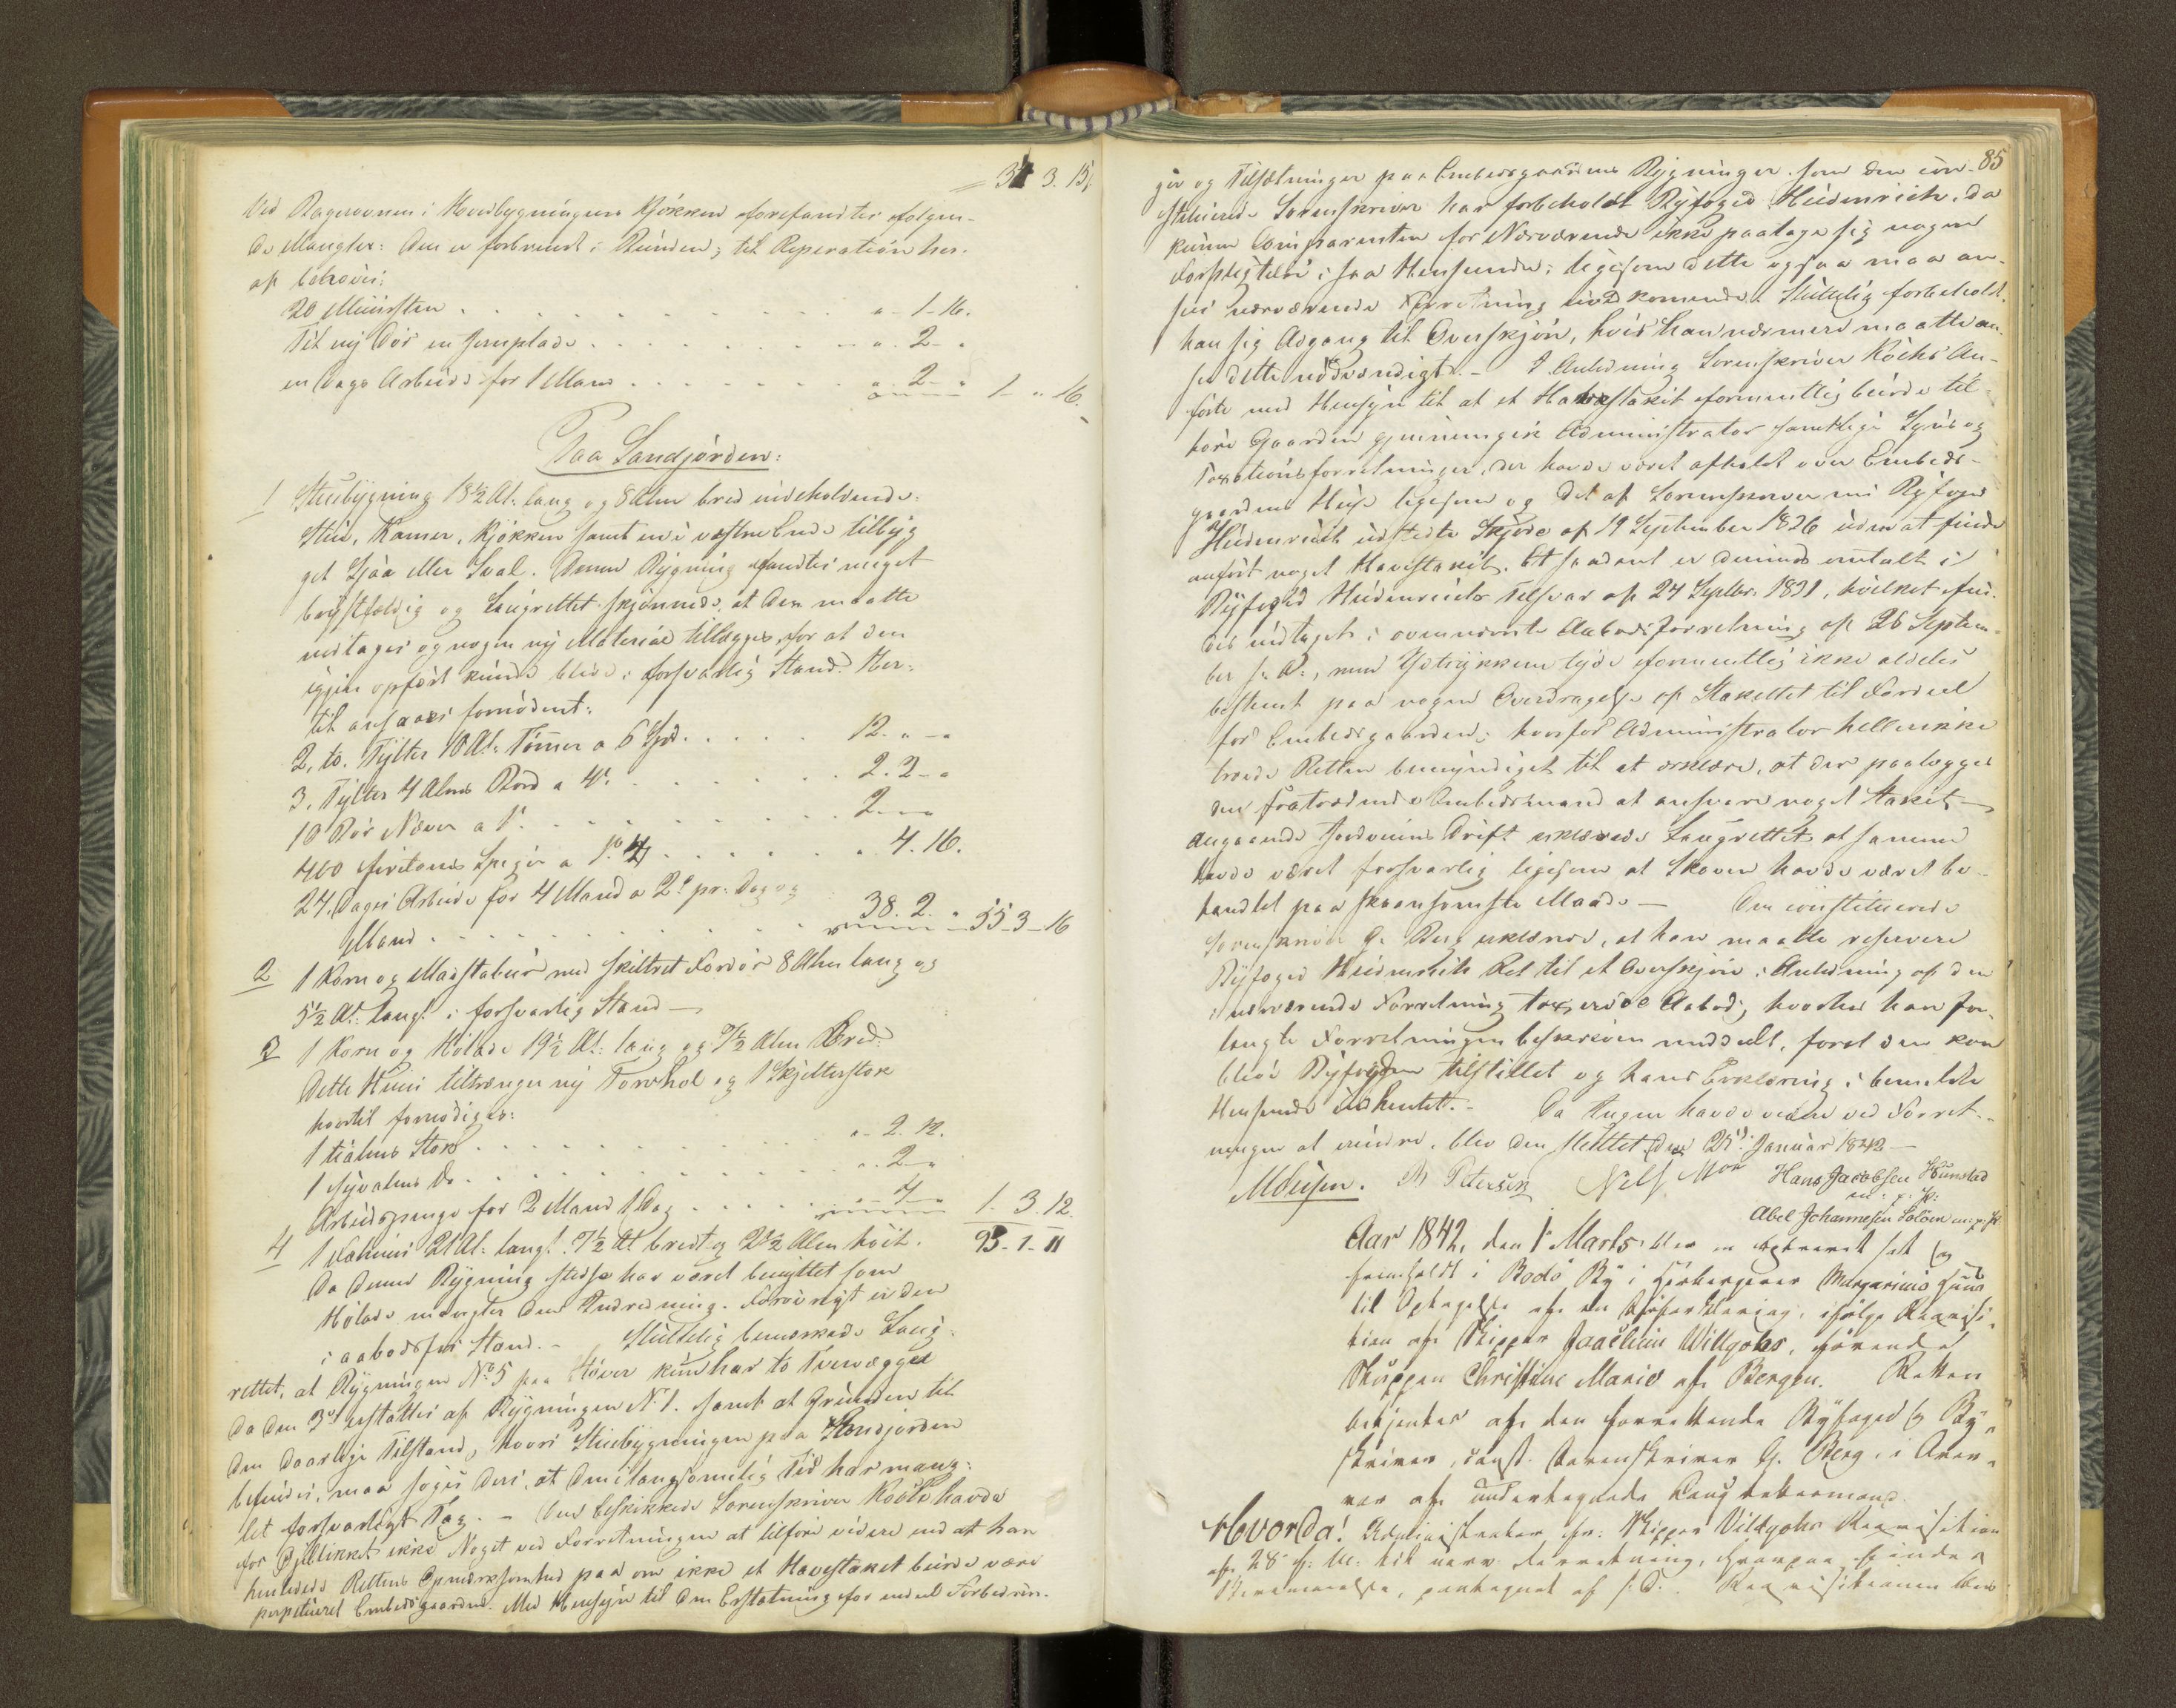 = 34 3. 15
Ved Bagerovnen i Hovedbygningens Kjökken forefandtes følgen-
de Mangler: Den er forbrændt i Bunden; til Reperation her-
af behøves:
20 Muursten . . . . . . . . . . . . . „ - 1-16.
Til ny Dör en Jernplade . . . . . . . . - „. 2- „
en Dags Arbeide for 1 Mand . . . . . . . „. 2- „ 1 - „ 16.
Paa Landjorden:
1 Stuebygning 18½ Al. lang og 8 Alen bred indeholdende:
Stue, Kamer, Kjökken samt en i vestre Ende tilbyg
get Sjaa eller Sval. Denne Bygning fandtes meget
bøystfældig og Laugrettet skjønnede, at den maatte
nedtages og nogen ny Material tillægges, for at den
igjen opført kunde blive i forsvarlig Stand. Her-
til ansaaes fornødent:
2, to. Tylter 10 Al. Tömer a 6 Spd. . . . . . 12. „ - „
3, Tylter 4 Alens Bord a 4 . . . . . . . . 2. 2- „
10 Bör Næver a 1 . . . . . . . . . . . 2. - „
400 firetoms Spiger a . . . . . . „ 4. 16.
24, Dages Arbeide for 4 Mand a 2 pr: Dag og
Mand . . . . . . . . . . . 38. 2. „ 55-3-16
2 1 Korn og Madstabur med skiltret Fordör 8 Alen lang og
5½ Al: langt i forsvarlig Stand —
3 1 Korn og Hölade 19½ Al: lang og 7½ Alen Bred:
Dette Huus tiltrænger ny Torvhol og 1 Skjelterstok
hvortil fornødiges:
1 tialens Stok . . . . . . . . . . „ - 2. 12.
1 syvalens Do . . . . . . . . . . „. 2- „
Arbeidspenge for 2 Mand 1 Dag . . . . . „ - 4 - „ 1. 3. 12.
4 1 Fæhuus 21 Al: langt. 7½ Al bredt og 2½ Alen höit. 93-1-11
Da denne Bygning stedse har været benyttet som
Hölade mangler den Indredning. Forövrigt er den
i aabodsfri Stand. - Sluttelig bemærkede Laug-
rettet, at Bygningen No 5 paa Höver kun har to Tvervægge
da den 3de erstattes af Bygningen N. 1. samt at Grunden til
den daarlige Tilstand, hvori Stuebygningen paa Landjorden
befindes, maa søges deri, at den i langsommelig Tid har mang-
let forsvarligt Tag. - Den beskikkede Sorenskriver Koch havde
for Øieblikket ikke Noget ved Forretningen at tilföre videre end at han
henledede Rettens Opmærksomhed paa om ikke et Havestaket burde være
perpetueret Embedsgaarden. Med Hensyn til den Erstatning for endeel Forbedrin-
85
ger og Tilsætninger paa Embedsgaardens Bygninger som den con-
stituerede Sorenskriver har forbeholdt Byfoged Heidenreich, da
kunne Comparenten for Nærværende ikke paatage sig nogen
Forpligtelse i saa Henseende; ligesom dette ogsaa maa an-
sees nærværende Forretning uvedkomende. Sluttelig forbeholdt
han sig Adgang til Overskjön, hvis han nærmere maatte an-
see dette nödvendigt. - I Anledning Sorenskriver Kochs An-
förte med Hensyn til at et Havestaket formentlig burde til-
höre Gaarden gjennemgik Administrator samtlige Syns og
Taxationsforretninger, der havde været afholdt over Embeds-
gaardens Huse ligesom og det af Sorenskriver nu Byfoged
Heidenreich udstedte Skjøde af 19 September 1826 uden at finde
anført noget Havestaket. Et saadant er derimod omtalt i
Byfoged Heidenreichs Tilsvar af 24 Septbr. 1831, hvilket fin-
des indtaget i ovennævnte Aabodsforretning af 26 Septem-
ber s. A:, men Udtrykkene lyde formentlig ikke aldeles
bestemt paa nogen Overdragelse af Stakettet til Fordeel
for Embedsgaarden; hvorfor Administrator heller ikke
troede Retten bemyndiget til at erklære, at der paalægges
den fratrædende Embedsmand at ansvare noget Staket —
Angaaende Jordveiens Drift erklærede Laugrettet at samme
havde været forsvarlig ligesom at Skoven havde været be-
handlet paa skaansomste Maade — Den constituerede
Sorenskriver G. Berg erklærede, at han maatte reservere
Byfoged Heidenreich Ret til et Overskjön i Anledning af den
i nærværende Forretning taxerede Aabod; hvorhos han for-
langte Forretningen beskreven meddeelt, forat den kan
blive Byfogden tilstillet og hans Erklæring i bemeldte
Henseende indhentet. - Da Ingen havde videre ved Forret-
ningen at erindre, blev den sluttet den 25de Januar 1842 —
M. Petersen Nils Moe Hans Jacobsen Hunstad
m: p: P:
Abel Johannesen Löböen m: p: P.
Aar 1842, den 1e Marts blev en Extraret sat og
fremholdt i Bodö By i Herbergerer Margarinis Huus
til Optagelse af en Söeforklaring, ifölge Requisi-
tion af Skipper Joachim Willgohs, førende
Skuppen Christine Marie af Bergen. Retten
betjentes af den forrettende Byfoged og By-
skriver, const. Sorenskriver G. Berg, i Overv-
vær af undertegnede Laugrettesmænd.
Hvorda! Administrator fr: Skipper Villgohs Requisition
af 28 f. M. til nærv. Forretning, hvorpaa findes
Berammelse, paategnet af s: D. Requisitionen blev